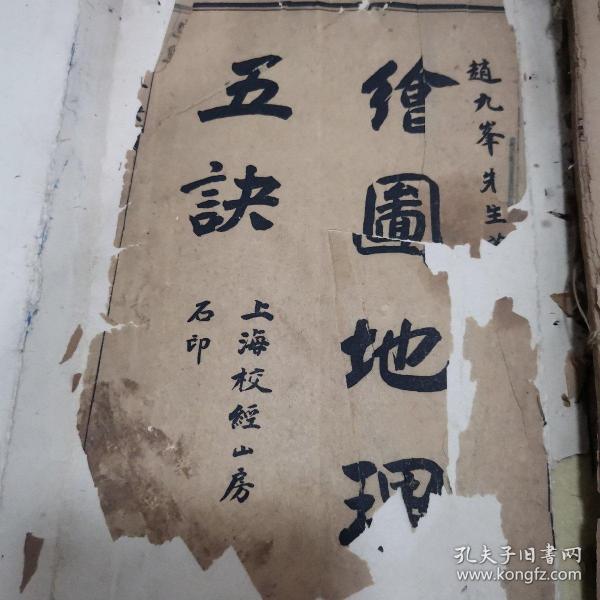 趙九峯先生著
繪圖地理
五訣
上海校經山房
石印
孔夫子旧书网
www.kongfz.com